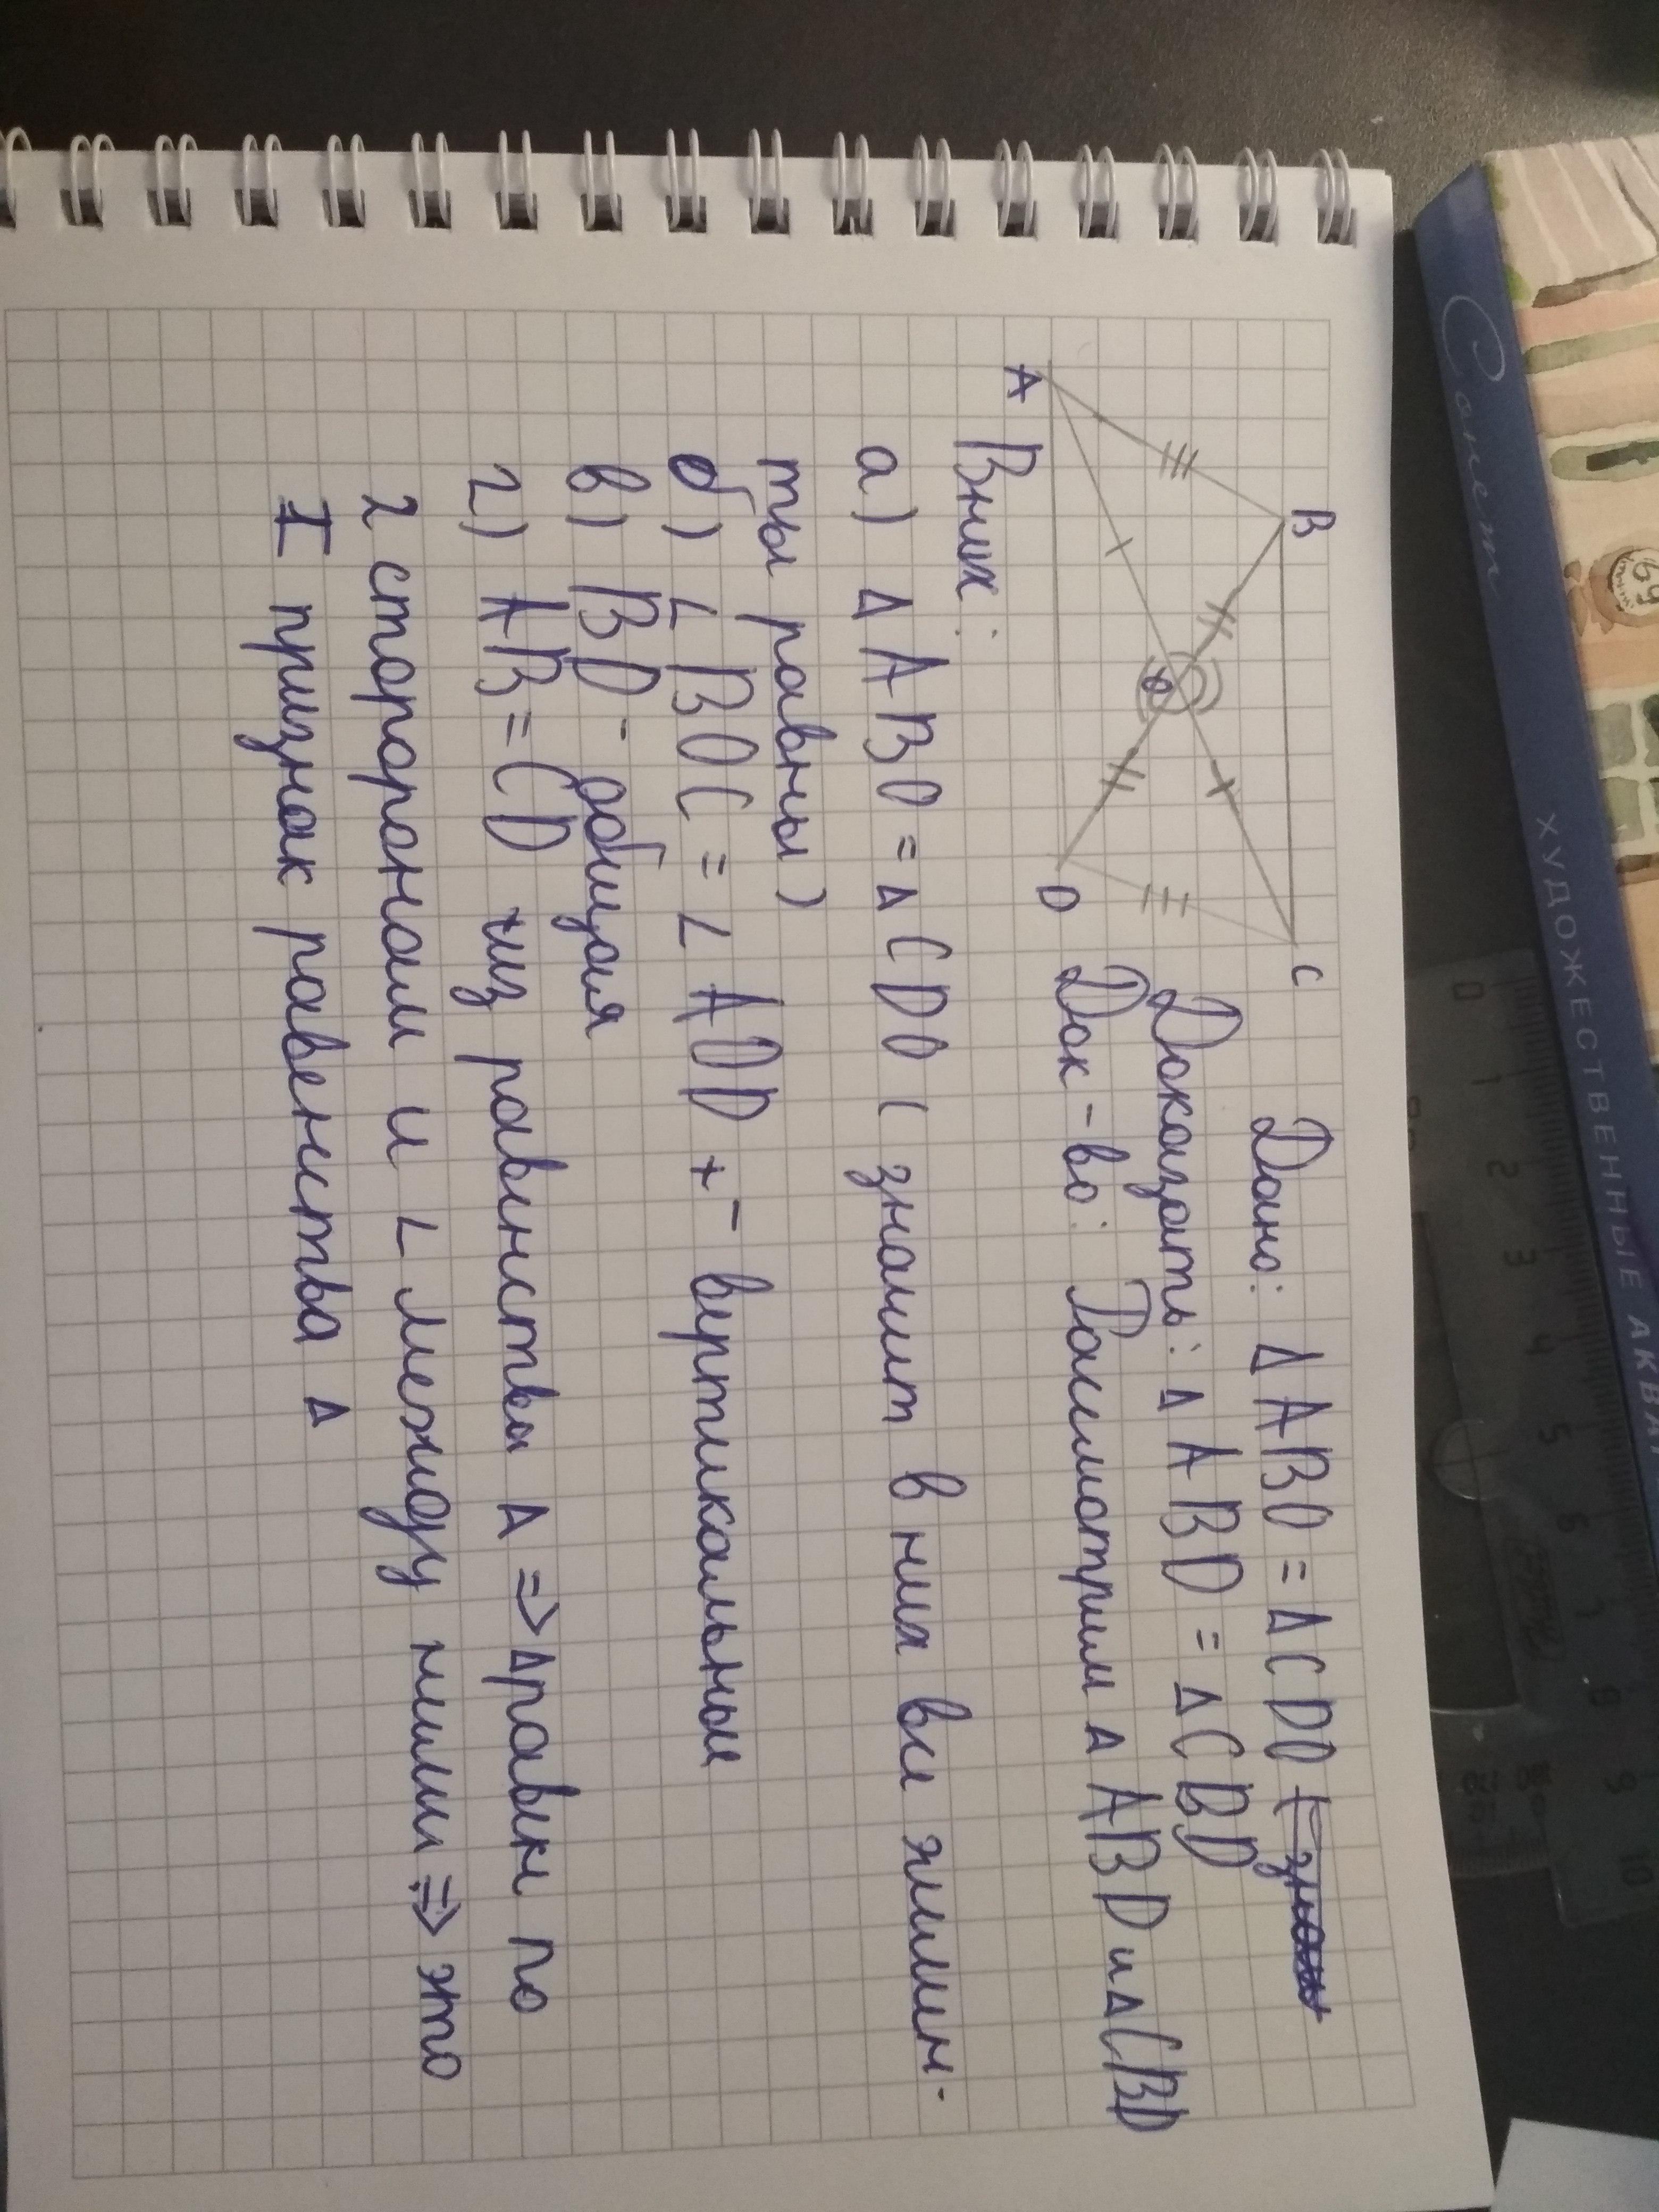 B
C
A
O
D
Дано: Δ ABO = Δ CDO
Доказать: Δ ABD = Δ CBD
Док-во: Рассмотрим Δ ABD и Δ CBD
В них:
а) Δ ABO = Δ CDO ( значит в них все элемен-
ты равны)
б) ∠ BOC = ∠ AOD - вертикальные
в) BD - общая
2) AB = CD из равенства Δ ⇒ Δ равен по
2 сторонам и ∠ между ними ⇒ это
I признак равенства Δ
Сонет
ХУДОЖЕСТВЕННЫЕ АКВАР
0 1 2 3 4 5 6 7 8 9 10